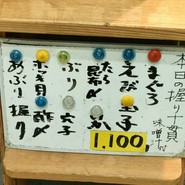 本日の握り十貫
味噌汁付
まぐろ
えび
玉子
たら昆布〆
ぶり
穴子
ホッキ貝
〆酢
あぶり
握り
1,100